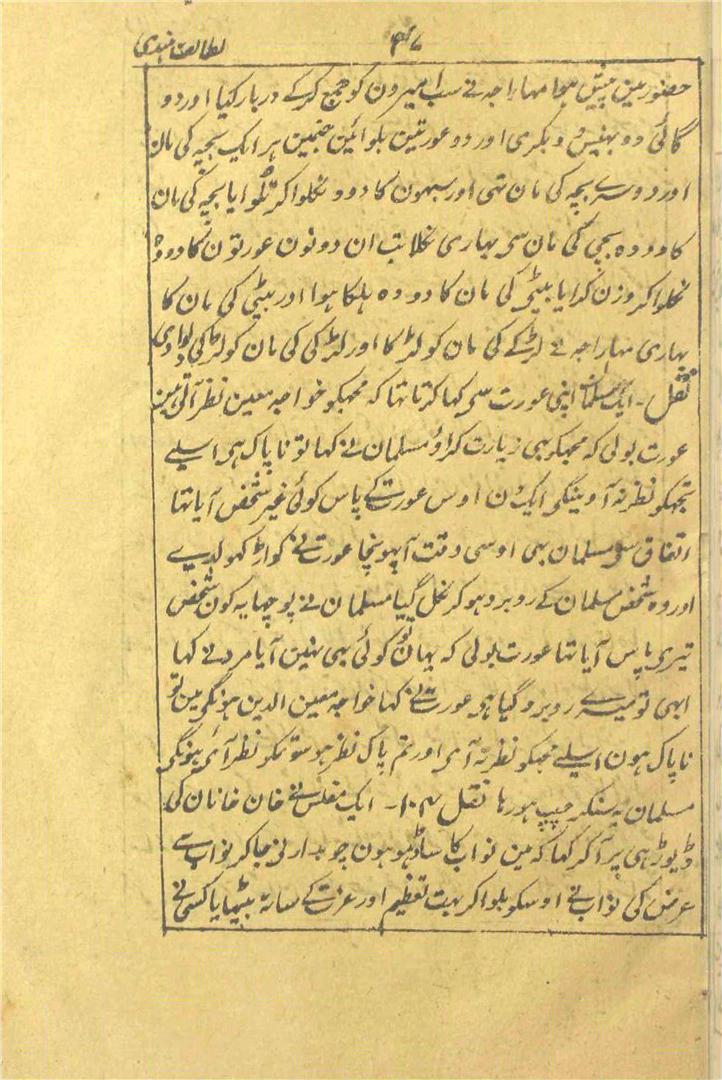 ۴۷ لطائف ہندی
حضور مین پیش ہوا مہاراجہ نے سب امیرون کو جمع کرکے دربار کیا اور دو
گائی دو بہنیس دو بکری اور دو عورتین بلوائین جنمین ہر ایک بچہ کی مان
اور دوسرے بچہ کی مان تہی اور سبہون کا دودہ نکلواکر تلوایا بچہ کی مان
کا دودہ بچی کی مان سی بہاری نکلا تب ان دونون عورتون کا دودہ
نکلواکر وزن کرایا بیٹی کی مان کا دودہ ہلکا ہوا اور بیٹی کی مان کا
بہاری مہاراجہ نے لڑکے کی مان کو لڑکا اور لڑکی کی مان کو لڑکی دلوادی
نقل ۔ ایک مسلمان اپنی عورت سی کہا کرتا تہا کہ مجہکو خواجہ معین نظر آتی ہین
عورت بولی کہ مجہکو بہی زیارت کراؤ مسلمان نے کہا تو ناپاک ہی اسلیے
تجہکو نظر نہ آوینگی ایک دن اوس عورت کے پاس کوئی غیر شخص آیا تہا
اتفاق سی مسلمان بہی اوسی وقت آپہونچا عورت نے کواڑ کہولدیے
اور وہ شخص مسلمان کے روبرو ہوکر نکل گیا مسلمان نے پوچہا یہ کون شخص
تیری پاس آیا تہا عورت بولی کہ یہان تو کوئی بہی نہین آیا مرد نے کہا
ابہی تو میرے روبرو گیا ہی عورت نے کہا خواجہ معین الدین ہونگی مین تو
ناپاک ہون اسلیے مجہکو نظر نہ آی اور تم پاک نظر ہو سو تمکو نظر آئی ہونگی
مسلمان یہ سنکر چپ ہورہا نقل ۱۰۴ ۔ ایک مفلس نے خان خانان کی
ڈیوڑہی پر آکر کہا کہ مین نواب کا ساڈہو ہون چوبدار نی جاکر نواب سے
عرض کی نواب نے اوسکو بلواکر بہت تعظیم اور عزت کے ساتہ بیٹہایا کسی نے